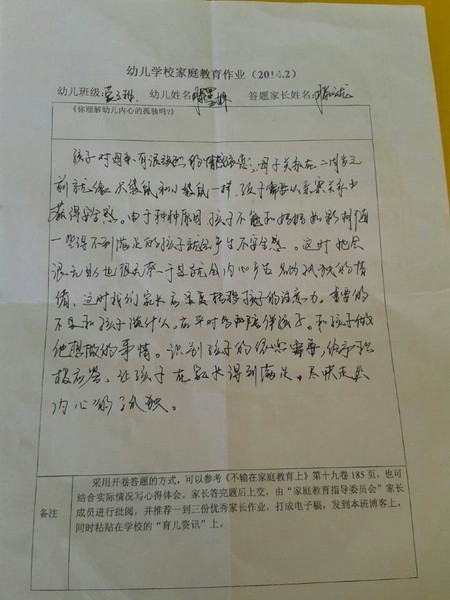 幼儿学校家庭教育作业（2014.2）
幼儿班级: 幼儿姓名 答题家长姓名:
《你理解幼儿内心的孤独吗?》
孩子对母亲有很强烈的情感依恋，母子关系在二周岁之
前就像大袋鼠和小袋鼠一样，孩子需要从亲密关系中
获得安全感。由于种种原因孩子不能和妈妈如影相随
一些得不到满足的孩子就会产生不安全感。这时他会
很无助也很无奈于是就会内心产生的孤独的情
绪，这时我们家长应采取转移孩子的注意力。重要的
不是和孩子说什么，在平时多陪伴孩子，和孩子做
他想做的事情。识别孩子的依恋需要，给予积
极应答。让孩子在家长得到满足，尽快走出
内心的孤独。
备注
采用开卷答题的方式，可以参考《不输在家庭教育上》第十九卷185页，也可
结合实际情况写心得体会。家长答完题后上交，由“家庭教育指导委员会”家长
成员进行批阅，并推荐一到三份优秀家长作业，打成电子稿，发到本班博客上，
同时粘贴在学校的“育儿资讯”上。